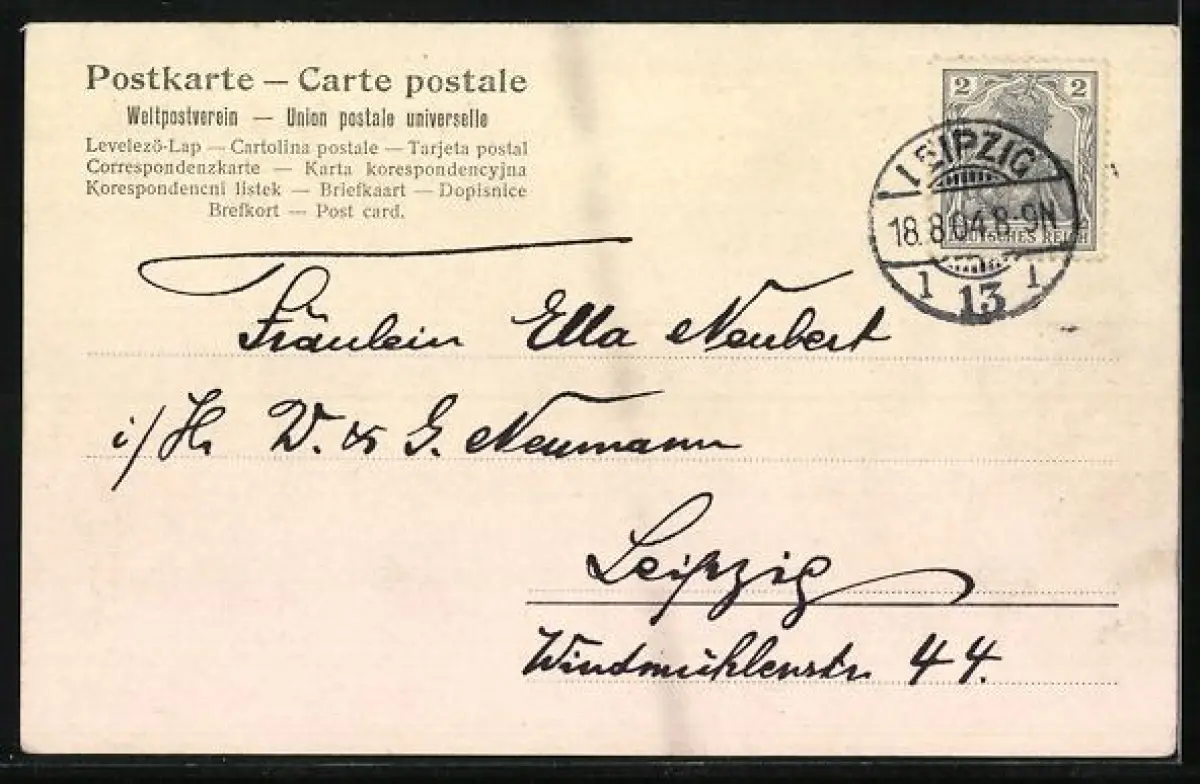 Postkarte — Carte postale
Weltpostverein — Union postale universelle
Levelező-Lap — Cartolina postale — Tarjeta postal
Correspondenzkarte — Karta korespondencyjna
Korespondencni listek — Briefkaart — Dopisnice
Brefkort — Post card.
2 2
DEUTSCHES REICH
LEIPZIG
18.8.04.8-9N
1 13 1
Fräulein Ella Neubert
i/H. W. & G. Neumann
Leipzig
Windmühlenstr 44.